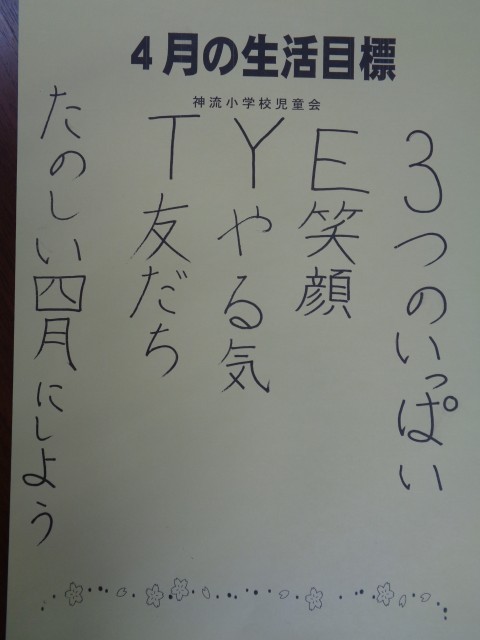 4月の生活目標
神流小学校児童会
3つのいっぱい
E笑顔
Yやる気
T友だち
たのしい四月にしよう